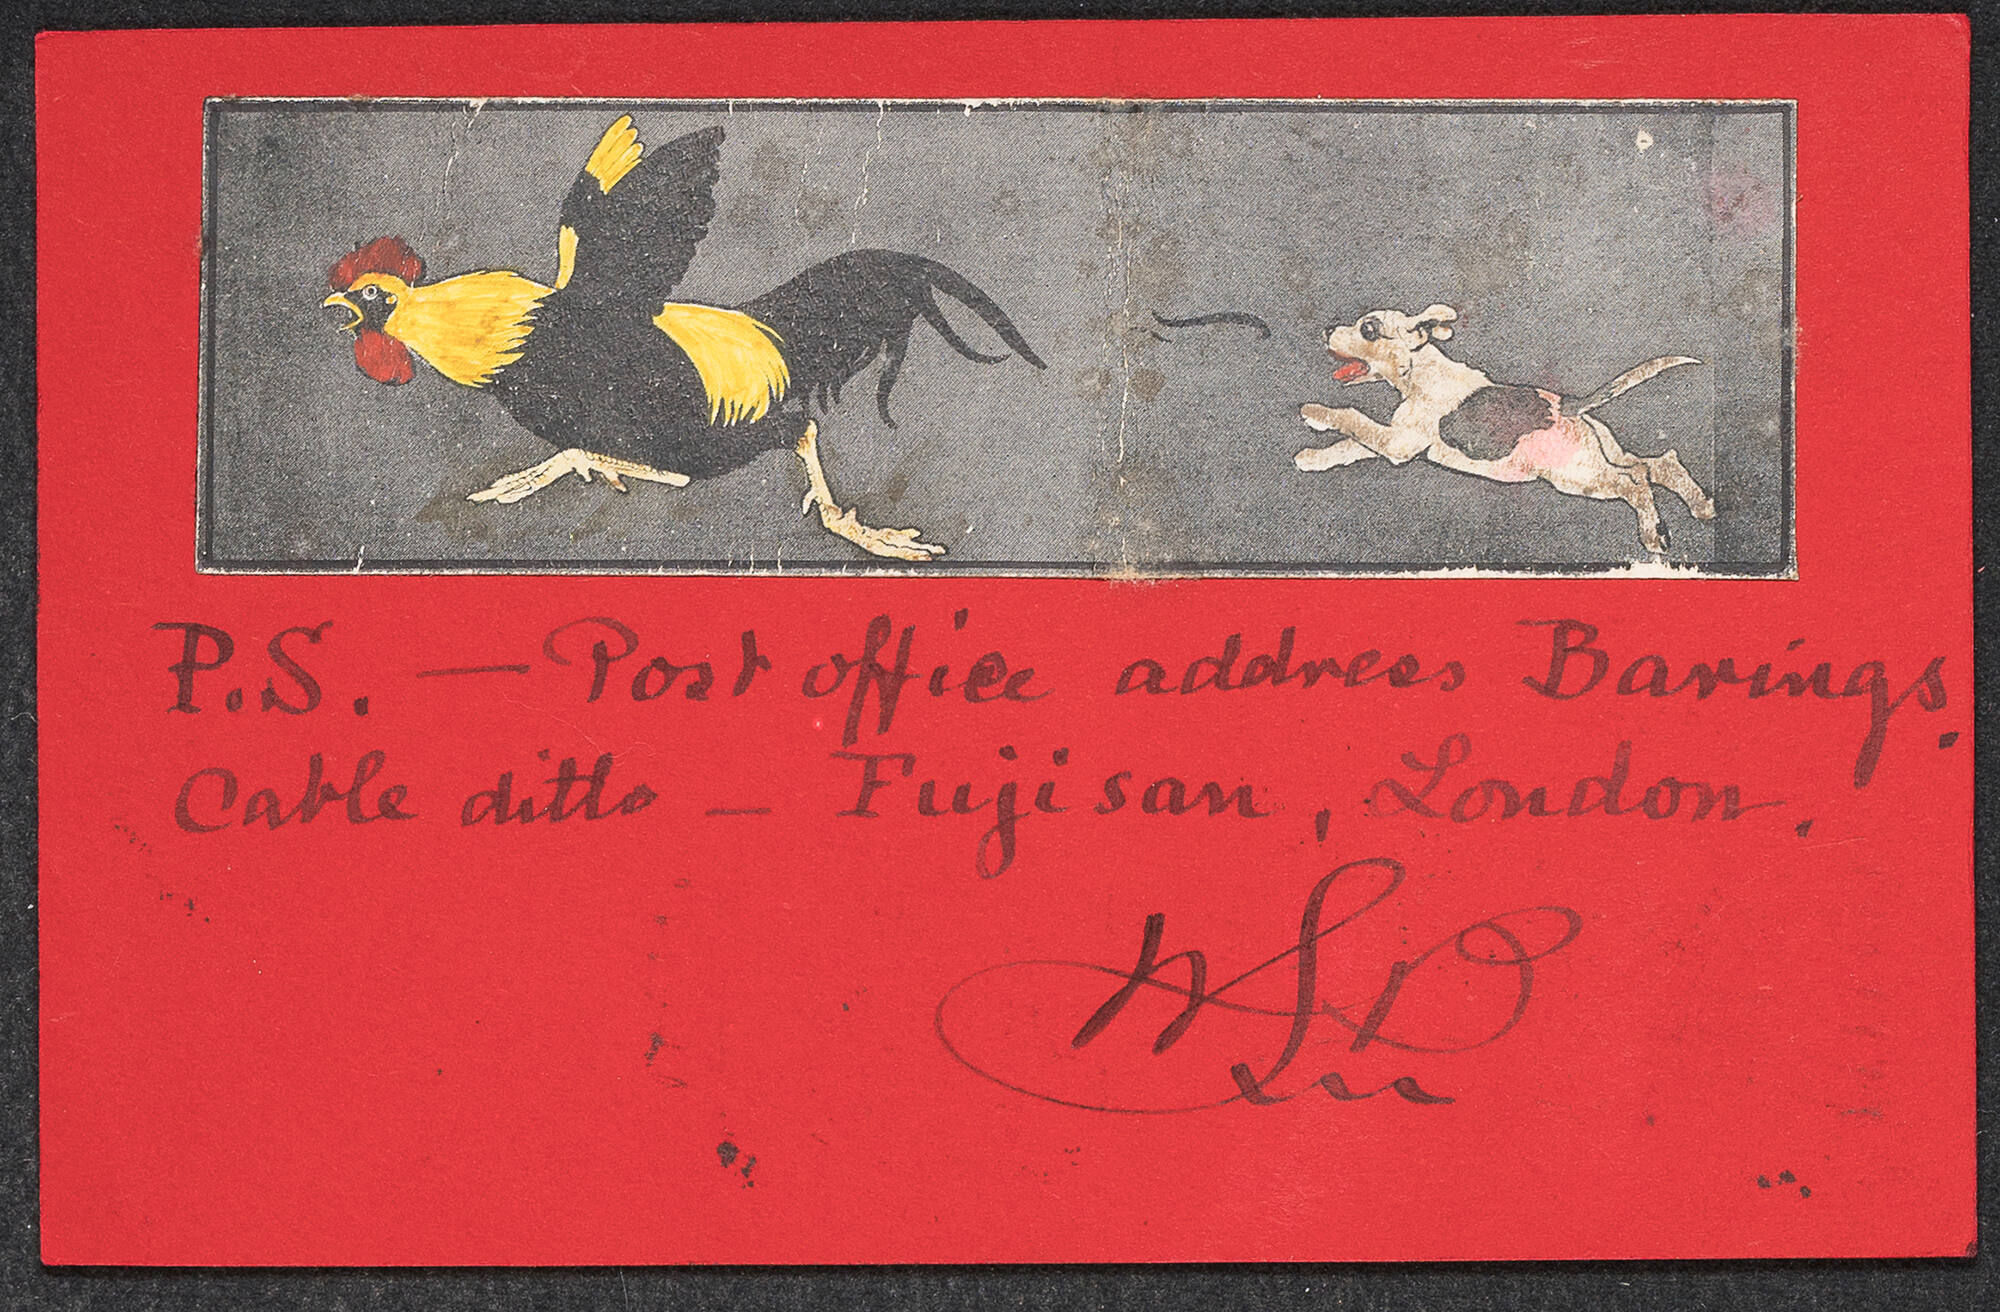 P.S. — Post office address Barings.
Cable ditto — Fujisan, London.